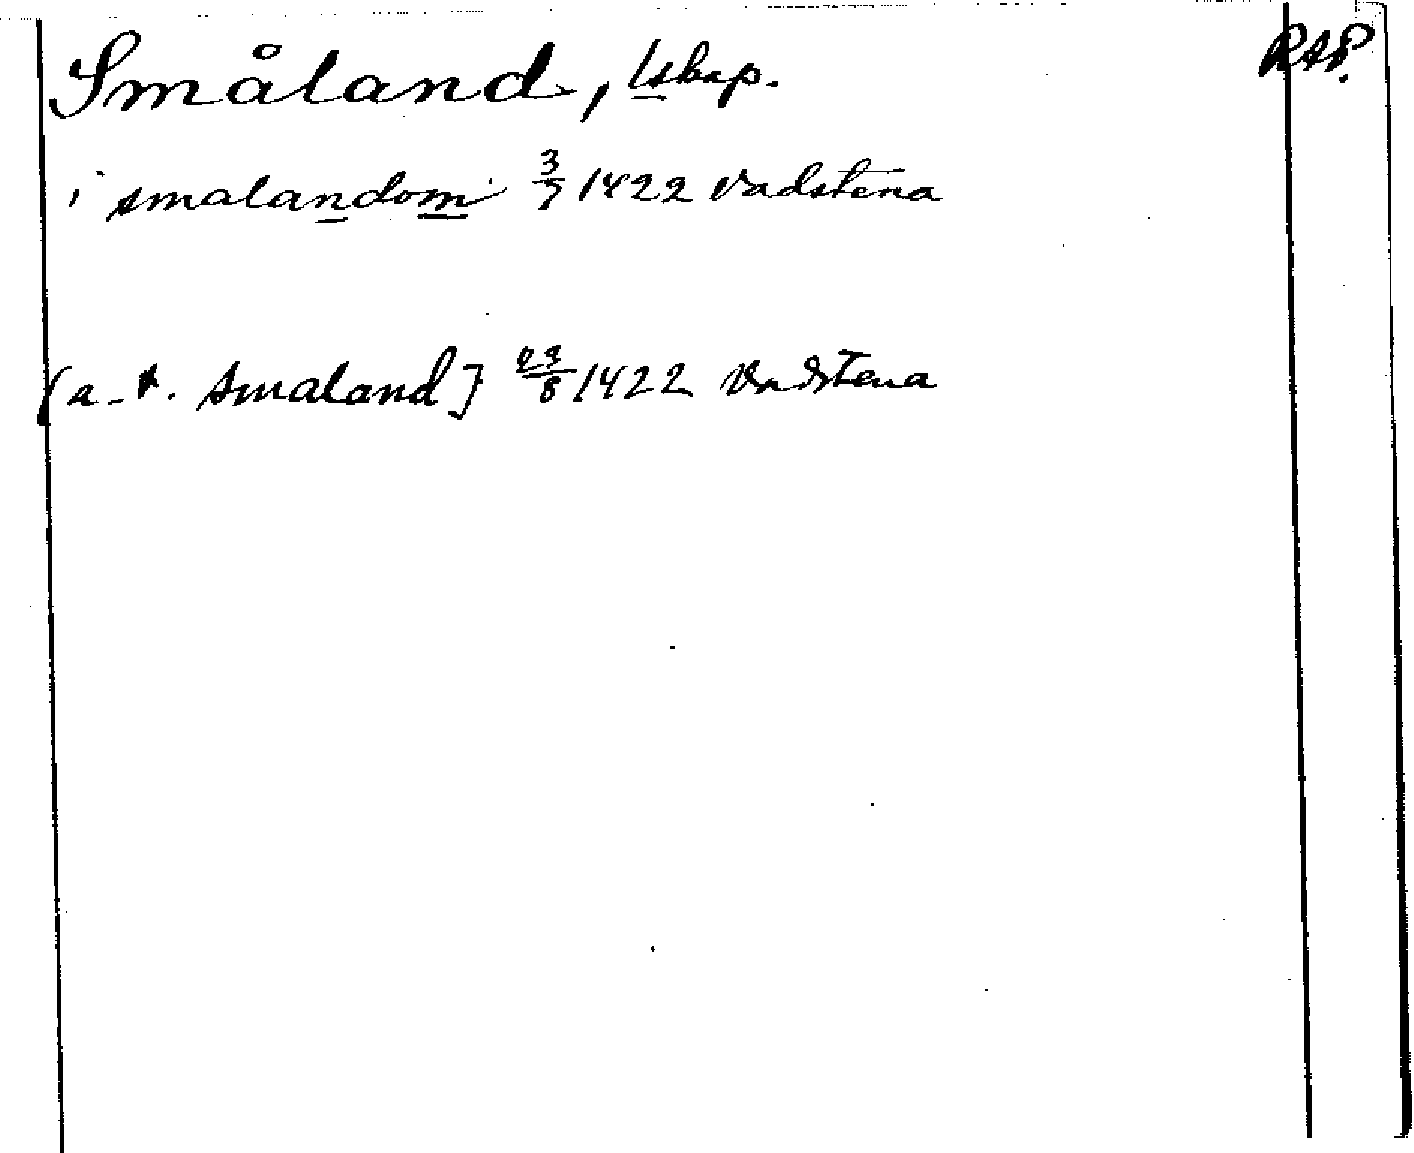 Småland, lskap. RAP.
i smalandom 3/7 1422 Vadstena
[a-t. Smaland] 23/8 1422 Vadstena